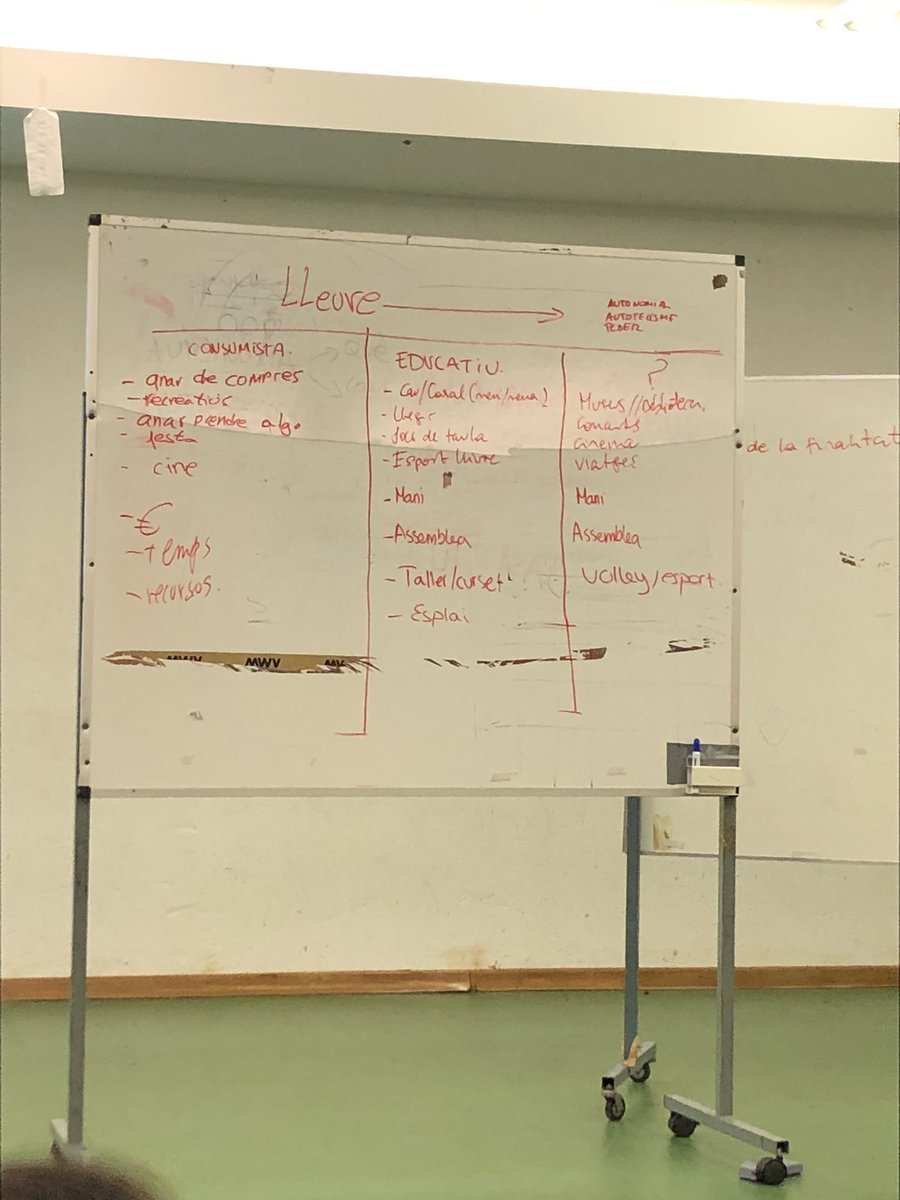 LLeure
AUTONOMIA
AUTOTELISME
PLAER
CONSUMISTA.
- anar de compres
- recreatius
- anar prendre algo
- festa
- cine
- €
- temps
- recursos.
EDUCATIU.
- Cau/Casal (nen/nena)
- llegir
- Jocs de taula
- Esport lliure
- Mani
- Assemblea
- Taller/curset
- Esplai
?
Museus//biblioteca
Concerts
cinema
viatges
Mani
Assemblea
Volley/esport.
de la finalitat
MWV MWV MV